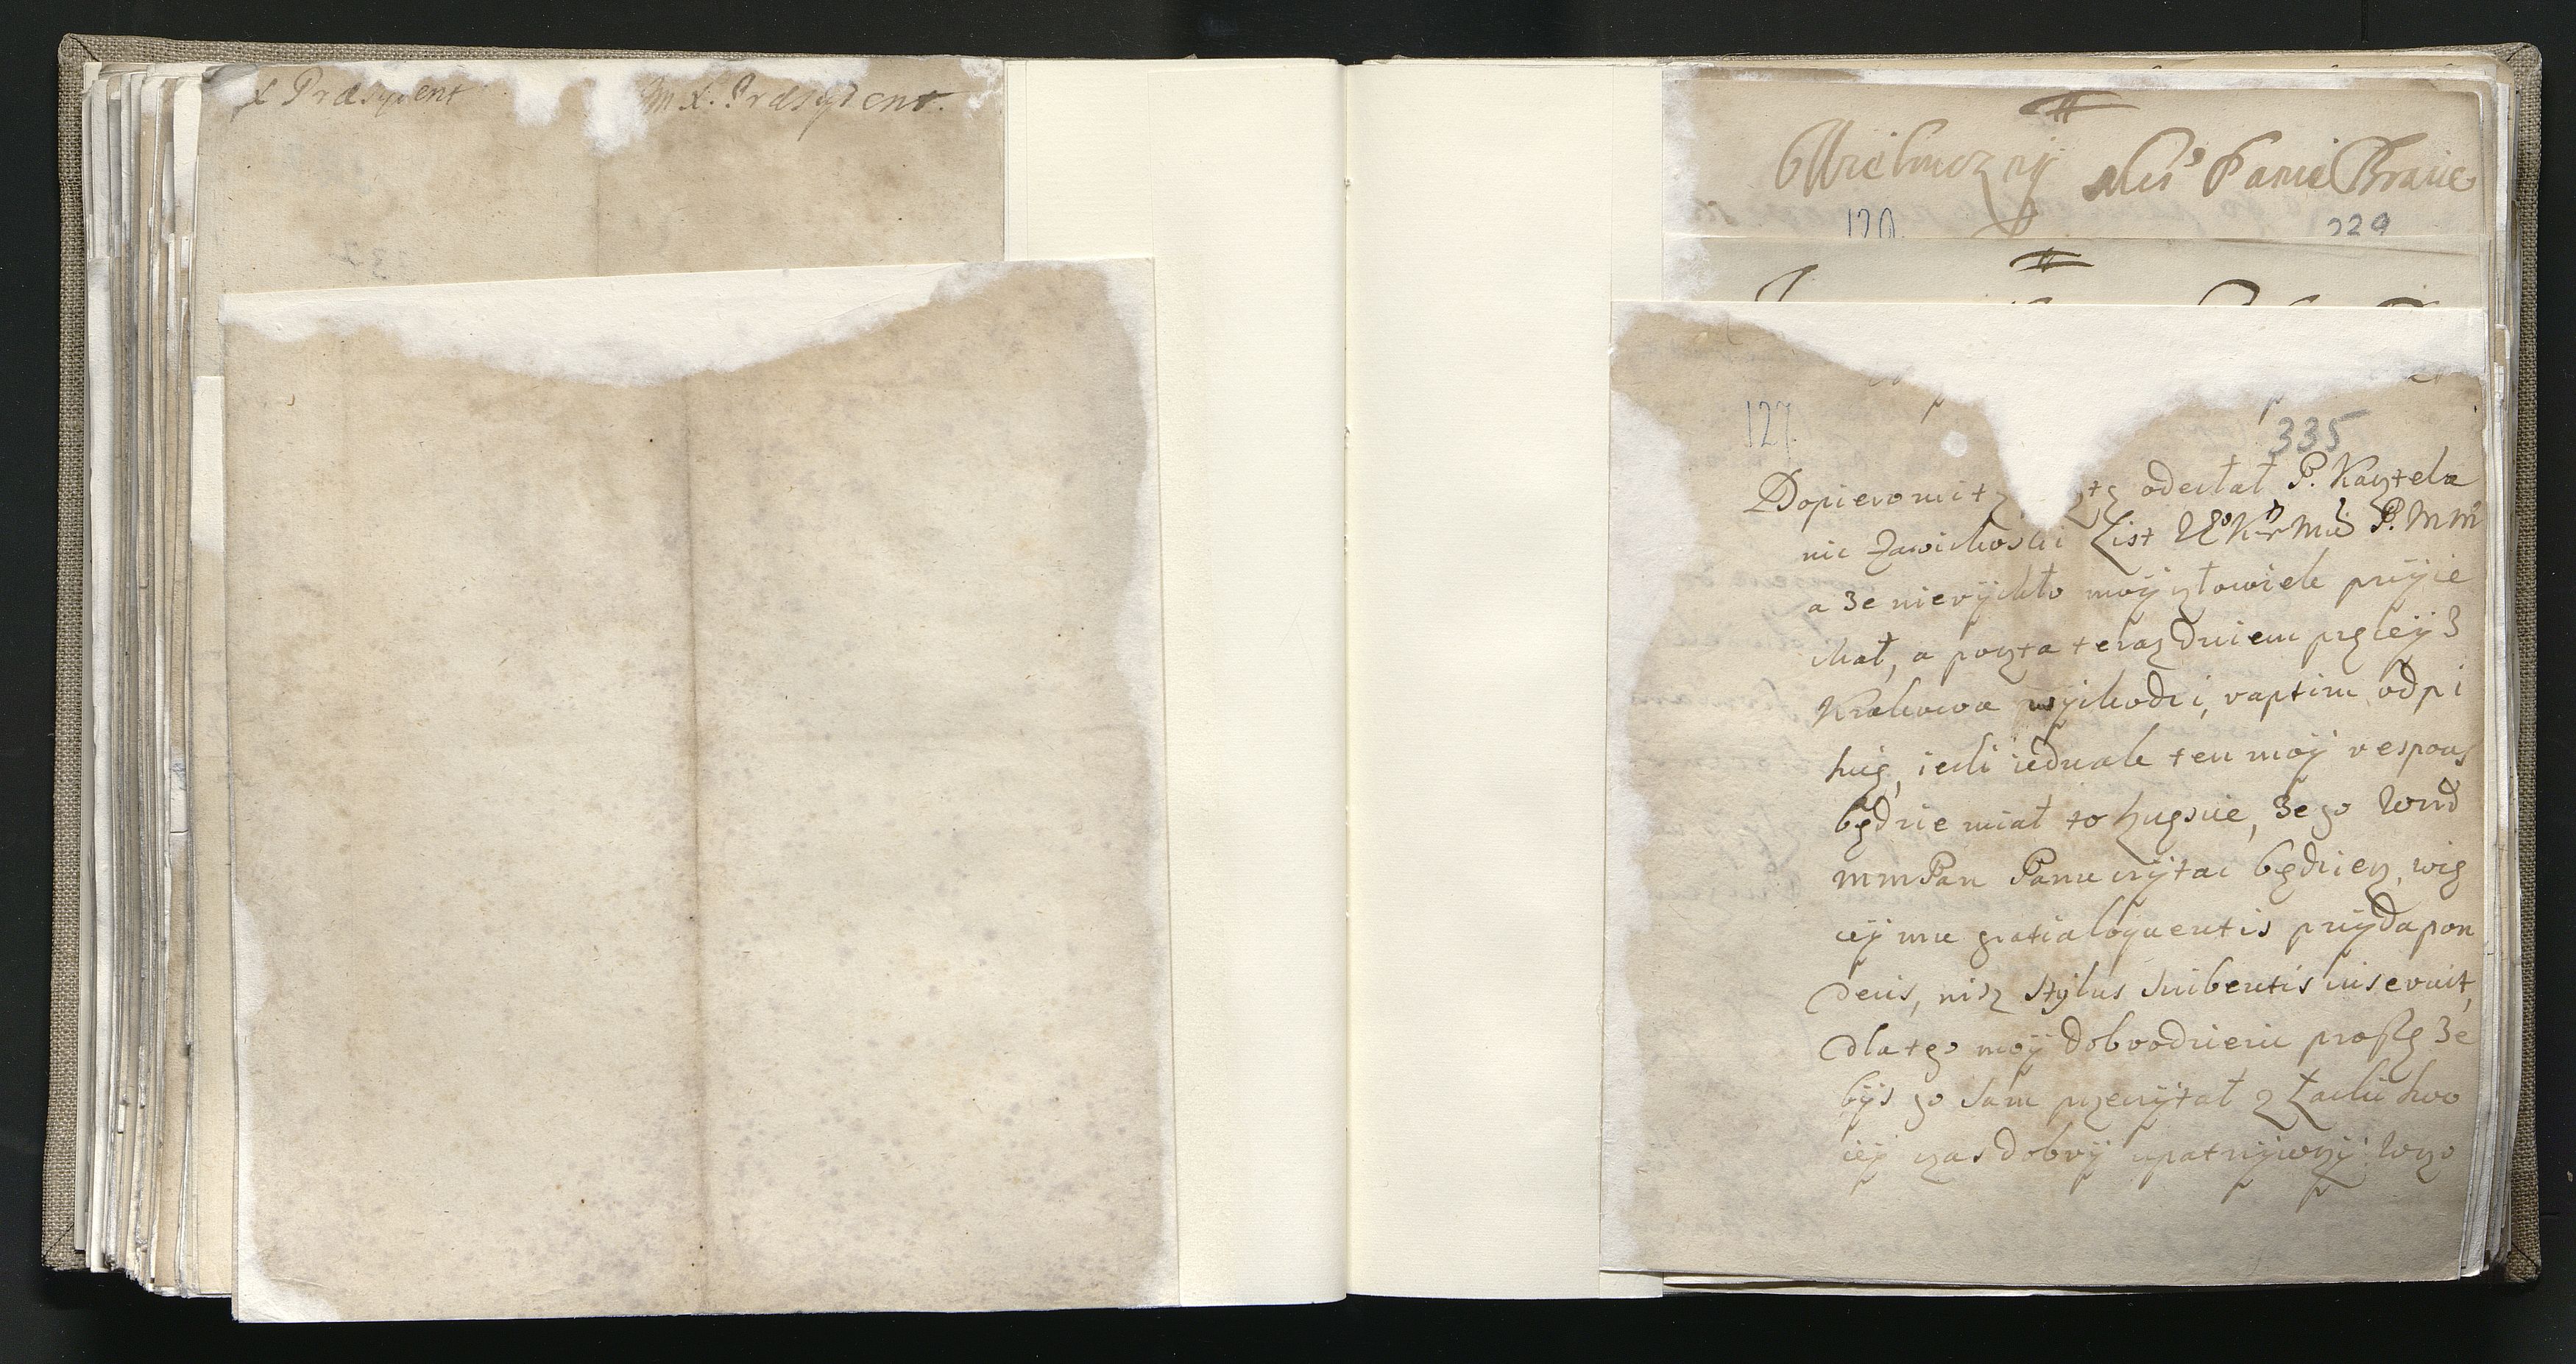 X Præsydent
Jm X. Præsydent.
Wielmozny Mci Panie Bracie
120
329
127
335
Dopiero mi odesłał P. Kasztela
nic Zawichoski List P. Mm
a że nierychło moy człowiek przyie
chał, a poczta teraz dniem pręcey z
Krakowa wychodzi, raptim odpi
suię, iesli iednak ten moy respons
będzie miał to szczęscie, że go
mm Pan Panu czytac będziesz, wię
cey mu gratia loquentis przyda pon
deris, nisz stylus scribentis inseruit,
dla tego moy Dobrodzieiu proszę że
bys go sam przeczytał z Łaski swo
iey czas dobry upatrzywszy